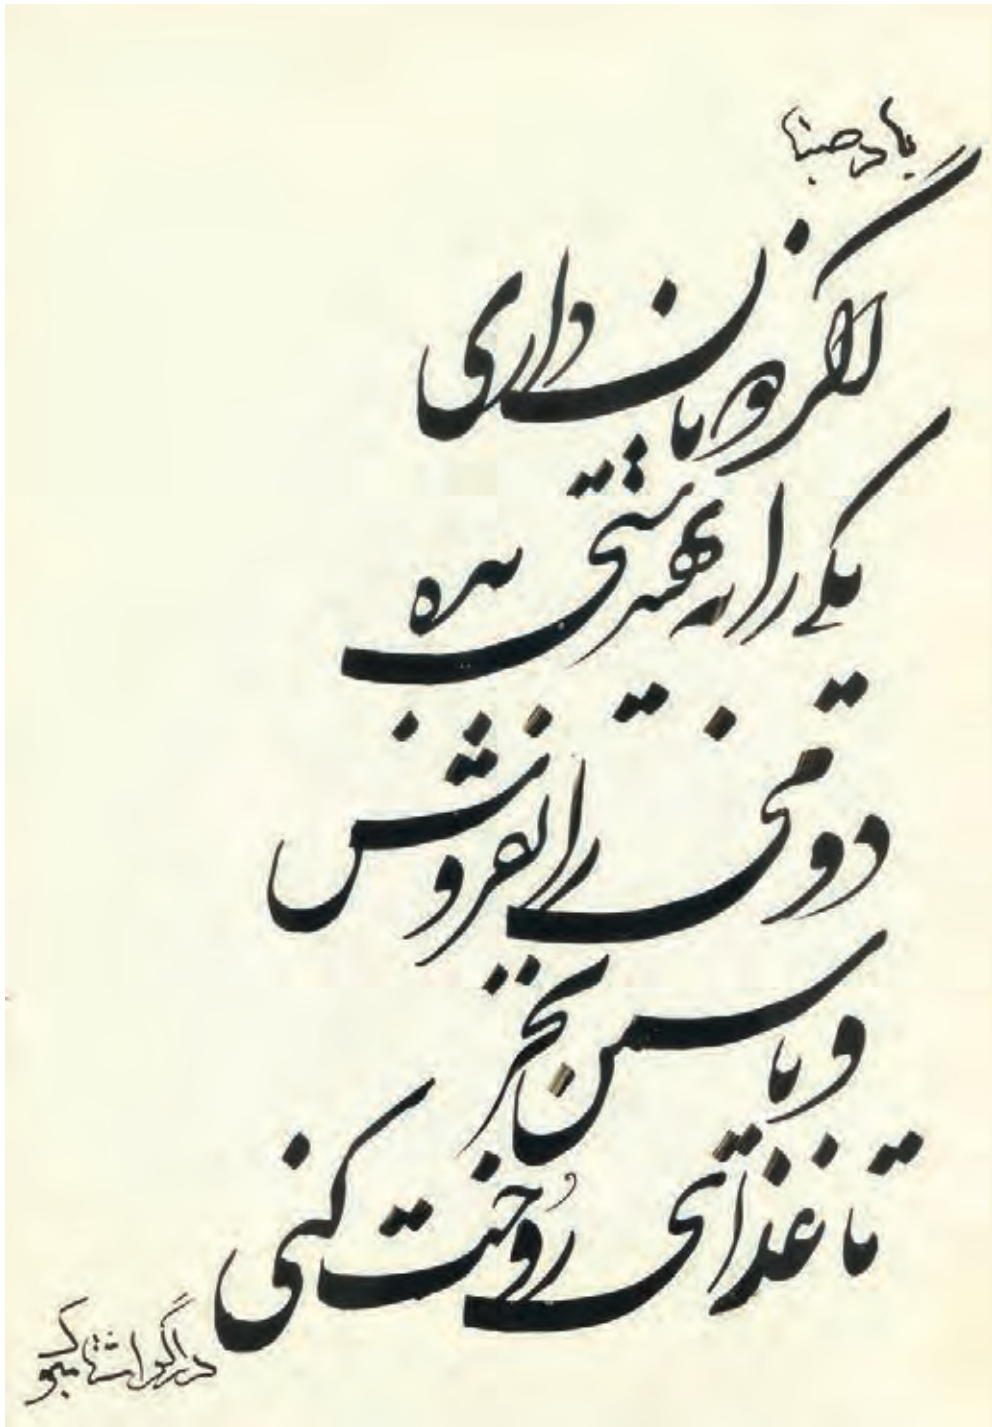 باد صبا
اگر دو نان داری
یکی را به تهیدستی بده
دومی را بفروش
و یاسمن بخر
تا غذای رُوحت کنی
دراگو اشتامبوک